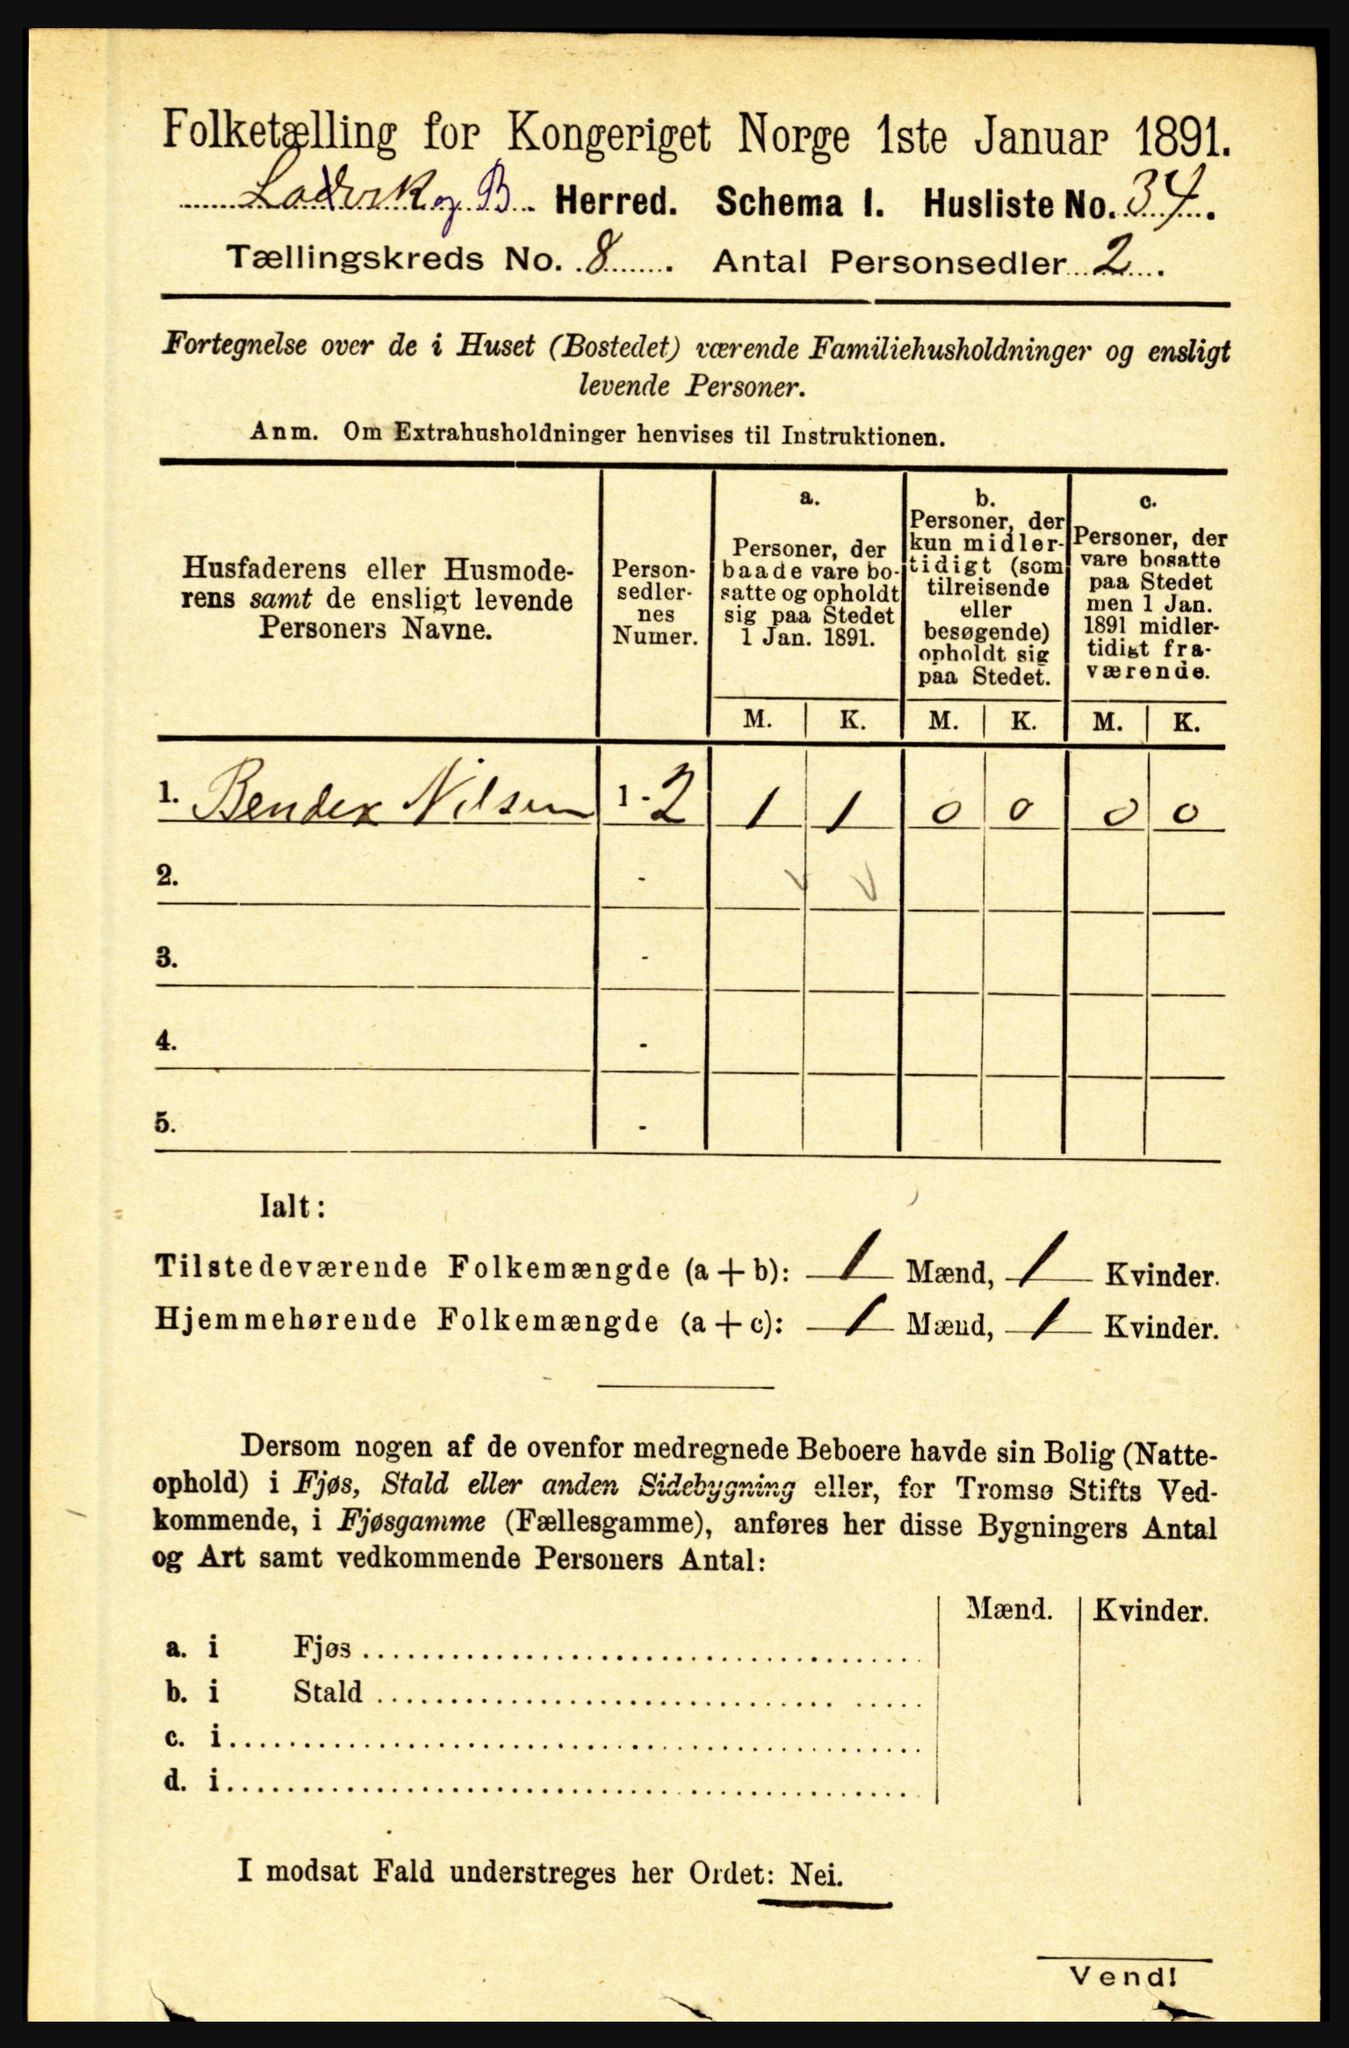 Folketælling for Kongeriget Norge 1ste Januar 1891.
Ladvik og B. Herred. Schema I. Husliste No. 34.
Tællingskreds No. 8. Antal Personsedler 2.
Fortegnelse over de i Huset (Bostedet) værende Familiehusholdninger og ensligt
levende Personer.
Anm. Om Extrahusholdninger henvises til Instruktionen.
Husfaderens eller Husmode-
rens samt de ensligt levende
Personers Navne.
Person-
sedler-
nes
Numer.
a.
Personer, der
baade vare bo-
satte og opholdt
sig paa Stedet
1 Jan. 1891.
b.
Personer, der
kun midler-
tidigt (som
tilreisende
eller
besøgende)
opholdt sig
paa Stedet.
c.
Personer, der
vare bosatte
paa Stedet
men 1 Jan.
1891 midler-
tidigt fra-
værende.
M. K. M. K. M. K.
1. Bendix Nilsen 1-2 1 1 0 0 0 0
2. -
3. -
4. -
5. -
Ialt:
Tilstedeværende Folkemængde (a+b): 1 Mænd, 1 Kvinder.
Hjemmehørende Folkemængde (a+c): 1 Mænd, 1 Kvinder.
Dersom nogen af de ovenfor medregnede Beboere havde sin Bolig (Natte-
ophold) i Fjøs, Stald eller anden Sidebygning eller, for Tromsø Stifts Ved-
kommende, i Fjøsgamme (Fællesgamme), anføres her disse Bygningers Antal
og Art samt vedkommende Personers Antal:
Mænd. Kvinder.
a. i Fjøs
b. i Stald
c. i
d. i
I modsat Fald understreges her Ordet: Nei.
Vend!